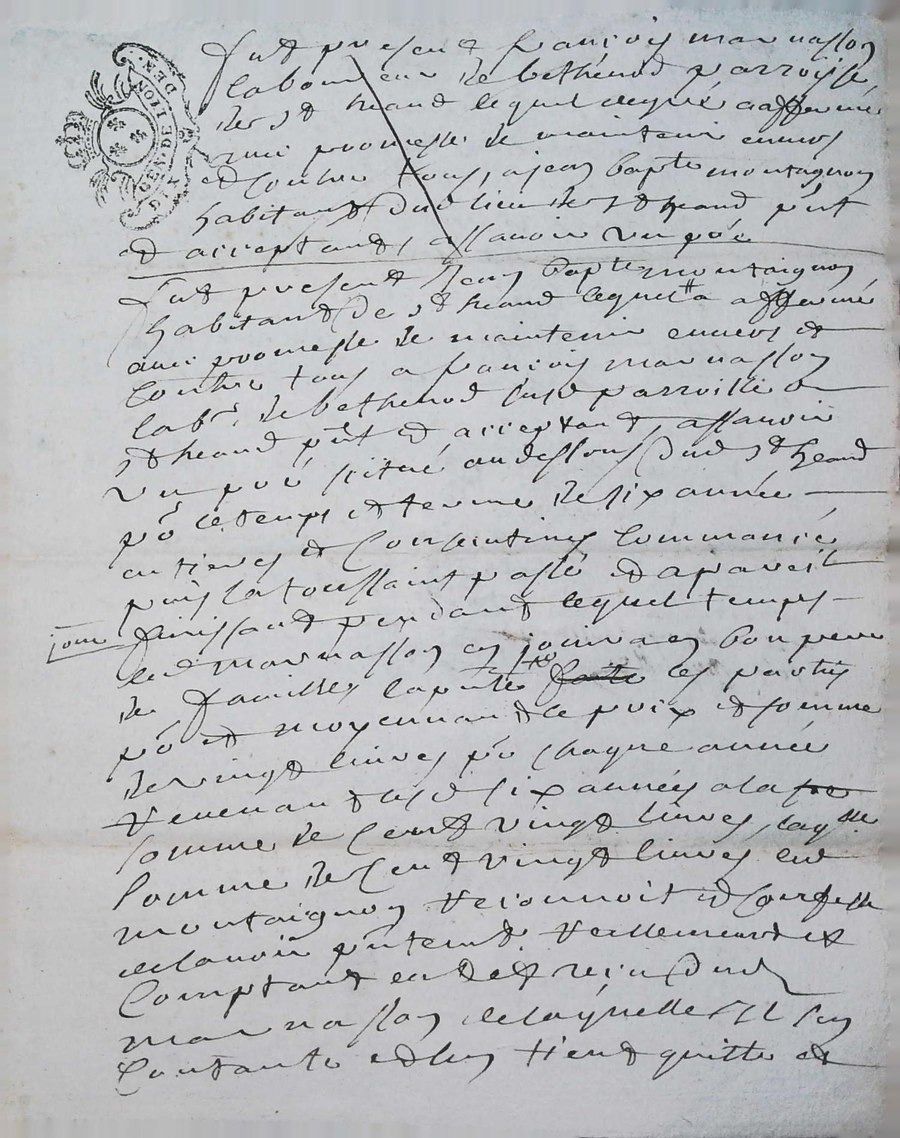 GEN. DE LION
DEN.
D. X
fut present françois marnasson
laboureur de bethenod parroisse
de St heand lequel de gré a affermé
avec promesse de maintenir envers
et contre tous, a jean bapte montagnon
habitant dud lieu de St heand pnt
et acceptant, assauoir un pré
fut present Jean bapte montaignon
habitant de St heand lequel a affermé
avec promesse de maintenir enuers et
contre tous a françois marnasson
labr de bethenod susd parroisse de
St heand pnt et acceptant, assauoir
un pré scitué audessous dud St heand
pr le temps et terme de six année
entieres et consecutives commancée
puis la toussaint passé et a pareil
jour finissant pendant lequel temps
led marnasson en jouira en bon pere
de famille les parties
pr et moyennant le prix et somme
de vingt liures pr chaque année
revenant lesd six années a la
somme de cent vingt liures, laqlle
somme de cent vingt liures led
montaignon reconnoit et confesse
de lauoir reellement et
comptant eu et reçu dud
marnasson de laquelle il sen
contante et len tient quitte et